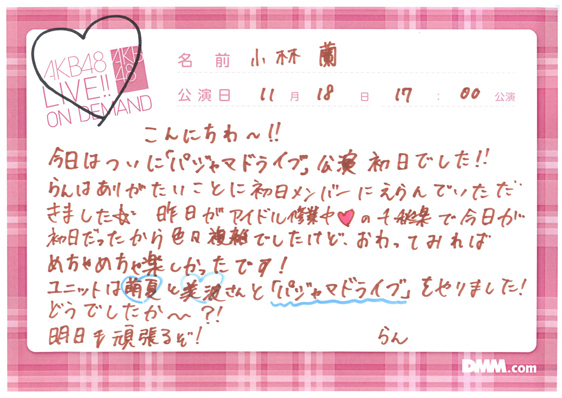 AKB48
LIVE!!
ON DEMAND
AKB
48
名前 小林 蘭
公演日 11月18日 17:00公演
こんにちわ〜!!
今日はついに「パジャマドライブ」公演 初日でした!!
らんはありがたいことに初日メンバーにえらんでいただ
きました 昨日がアイドル修業中♥の千秋楽で今日が
初日だったから色々複雑でしたけど、おわってみれば
めちゃめちゃ楽しかったです!
ユニットは萌夏と美波さんと「パジャマドライブ」をやりました!
どうでしたか〜?!
明日も頑張るぞ! らん
DMM.com